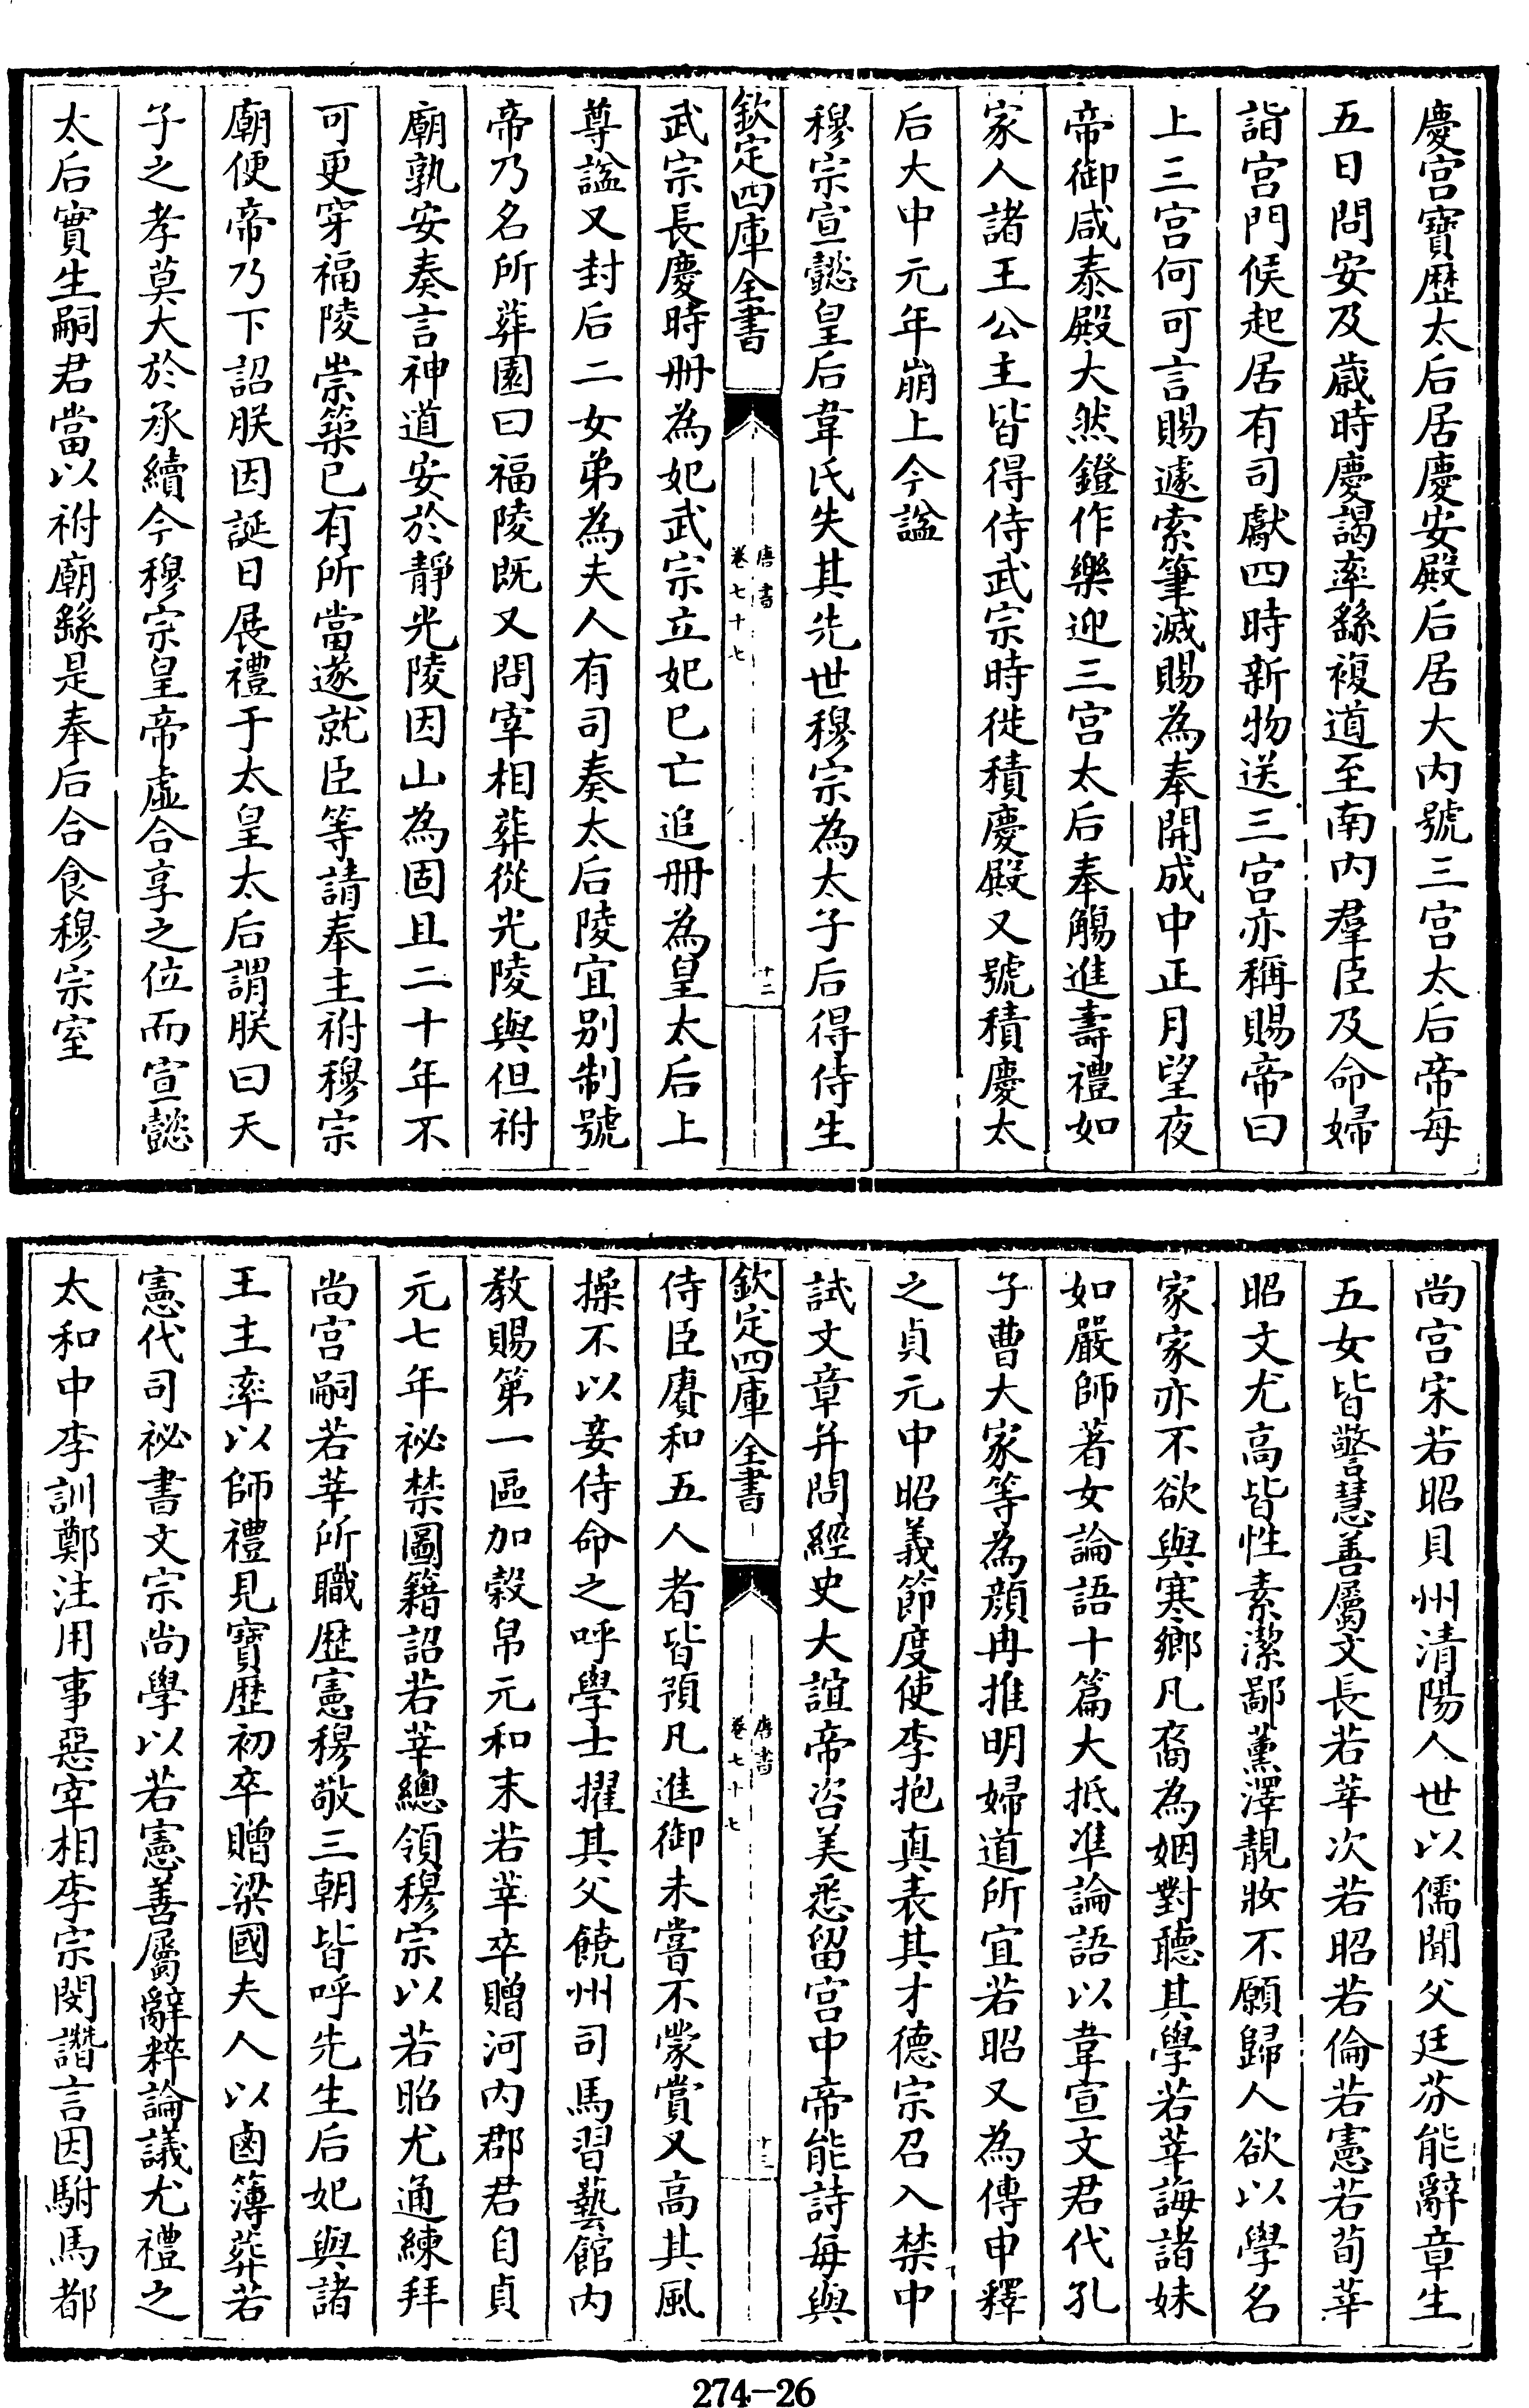 慶宫寳歴太后居慶安殿后居大内號三宫太后帝每
五日問安及嵗時慶謁率繇複道至南内羣臣及命婦
詣宫門候起居有司獻四時新物送三宫亦稱賜帝曰
上三宫何可言賜遽索筆滅賜為奉開成中正月望夜
帝御咸泰殿大然鐙作樂迎三宫太后奉觴進壽禮如
家人諸王公主皆得侍武宗時徙積慶殿又號積慶太
后大中元年崩上今諡
穆宗宣懿皇后韋氏失其先世穆宗為太子后得侍生
欽定四庫全書
唐書
卷七十七
十二
武宗長慶時册為妃武宗立妃已亡追册為皇太后上
尊諡又封后二女弟為夫人有司奏太后陵宜别制號
帝乃名所葬園曰福陵既又問宰相葬從光陵與但祔
廟孰安奏言神道安於靜光陵因山為固且二十年不
可更穿福陵崇築已有所當遂就臣等請奉主祔穆宗
廟便帝乃下詔朕因誕日展禮于太皇太后謂朕曰天
子之孝莫大於承續今穆宗皇帝虚合享之位而宣懿
太后實生嗣君當以祔廟繇是奉后合食穆宗室
尚宫宋若昭貝州清陽人世以儒聞父廷芬能辭章生
五女皆警慧善屬文長若莘次若昭若倫若憲若荀莘
昭文尤高皆性素潔鄙薰澤靚妝不願歸人欲以學名
家家亦不欲與寒鄉凡裔為姻對聽其學若莘誨諸妹
如嚴師著女論語十篇大抵準論語以韋宣文君代孔
子曹大家等為顔冉推明婦道所宜若昭又為傳申釋
之貞元中昭義節度使李抱真表其才德宗召入禁中
試文章并問經史大誼帝咨美悉留宫中帝能詩每與
欽定四庫全書
唐書
卷七十七
十三
侍臣賡和五人者皆預凡進御未嘗不蒙賞又高其風
操不以妾侍命之呼學士擢其父饒州司馬習藝館内
敎賜第一區加榖帛元和末若莘卒贈河内郡君自貞
元七年祕禁圖籍詔若莘總領穆宗以若昭尤通練拜
尚宫嗣若莘所職歴憲穆敬三朝皆呼先生后妃與諸
王主率以師禮見寳歴初卒贈梁國夫人以鹵簿葬若
憲代司祕書文宗尚學以若憲善屬辭粹論議尤禮之
太和中李訓鄭注用事惡宰相李宗閔譖言因駙馬都
274-26